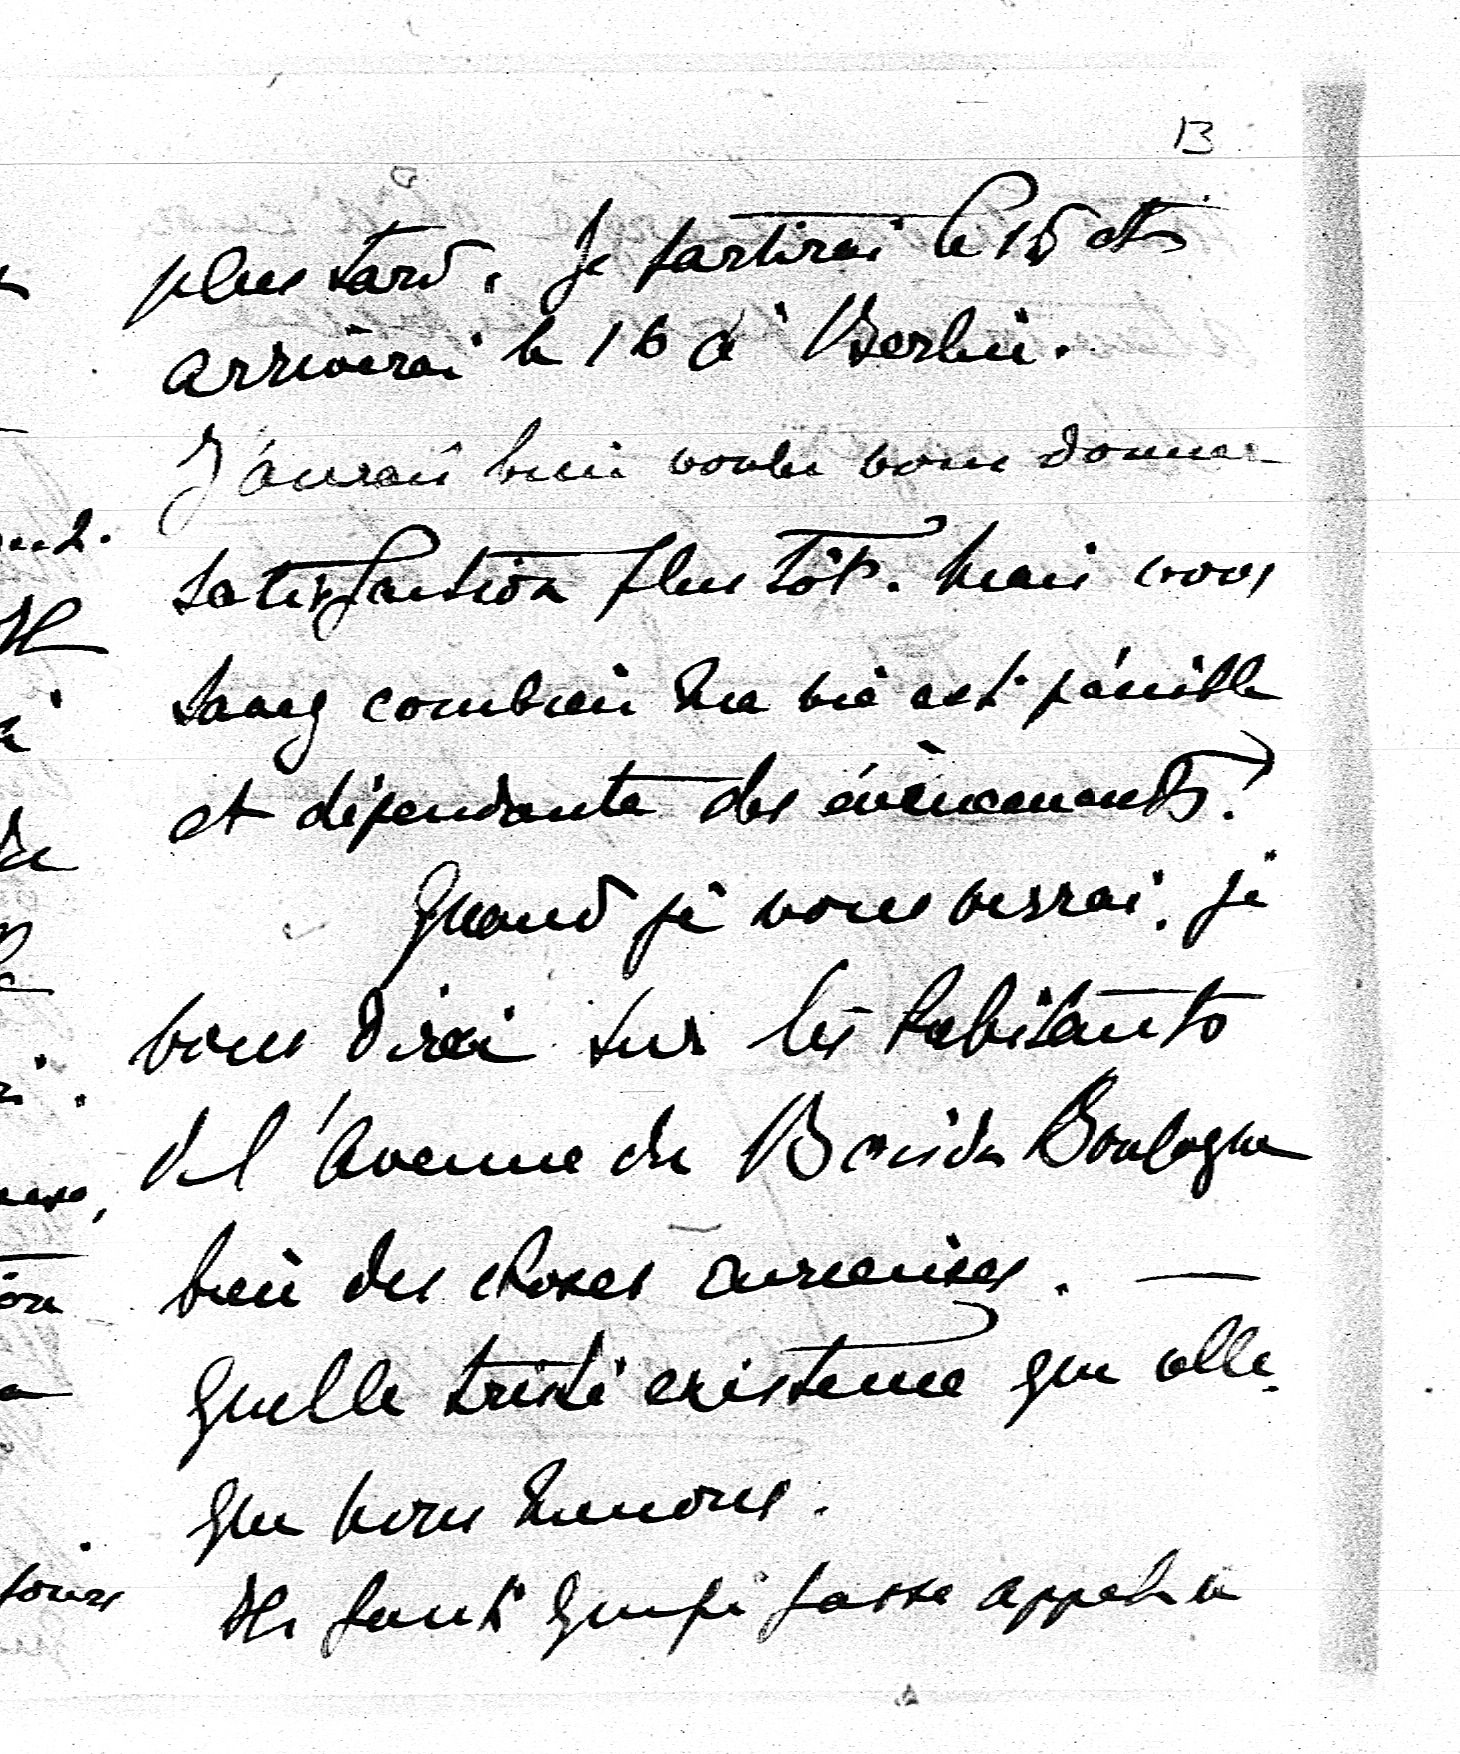 13
plus tard. Je partirai le 15 et
arriverai le 16 à Berlin.
J'aurais bien voulu vous donner
satisfaction plus tôt. Mais vous
savez combien ma vie est pénible
et dépendante des évènements!
Quand je vous verrai, je
vous dirai sur les habitants
de l'Avenue du Bois de Boulogne
bien des choses curieuses. —
Quelle triste existence que celle
que nous menons.
Il faut que je fasse appel à